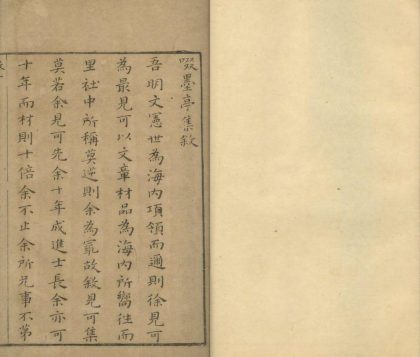 啜墨亭集敘
吾明文憲世為海內項領而邇則徐見可
為最見可以文章材品為海內所嚮往而
里社中所稱莫逆則余為最故敘見可集
莫若余見可先余十年成進士長余亦可
十年而材則十倍余不止余所兄事不第